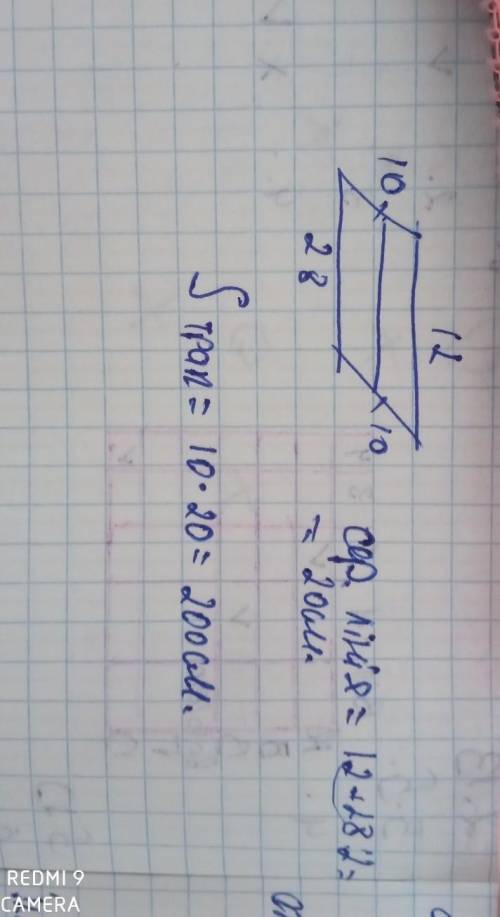 12
10
10
28
сер. лінія = 12+28:2=
= 20см.
S трап = 10·20 = 200см.
REDMI 9
CAMERA